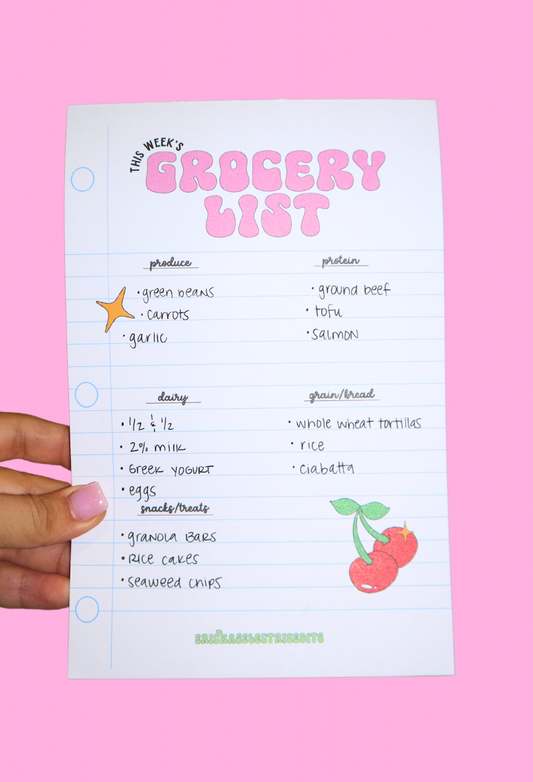 THIS WEEK'S
GROCERY
LIST
produce
• green beans
• carrots
• garlic
protein
• ground beef
• tofu
• salmon
dairy
• 1/2 & 1/2
• 2% milk
• Greek YOGURT
• eggs
grain/bread
• whole wheat tortillas
• rice
• ciabatta
snacks/treats
• GRANOLA BARS
• RICE CAKES
• seaweed chips